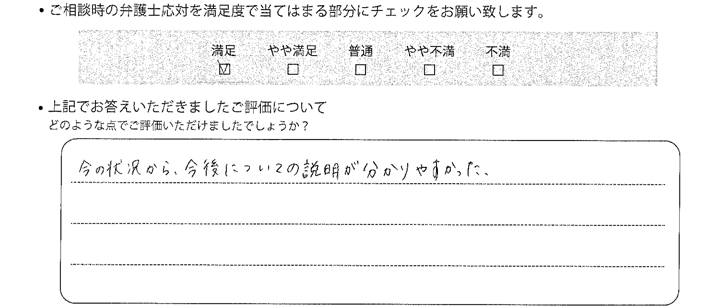 ・ご相談時の弁護士応対を満足度で当てはまる部分にチェックをお願い致します。
満足 やや満足 普通 やや不満 不満
☑ □ □ □ □
・上記でお答えいただきましたご評価について
どのような点でご評価いただけましたでしょうか?
今の状況から、今後についての説明が分かりやすかった、